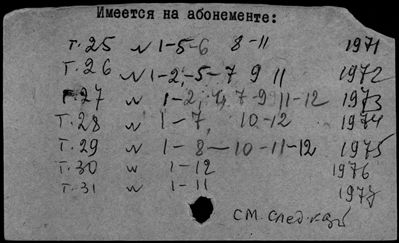 Имеется на абонементе:
т.25 N 1-5-6 8-11 1971
т.26 N 1-2,-5-7 9 11 1972
т.27 N 1-2, 4, 7-9 11-12 1973
т.28 N 1-7, 10-12 1974
т.29 N 1-8-10-11-12 1975
т.30 N 1-12 1976
т.31 N 1-11 1977
см. след.